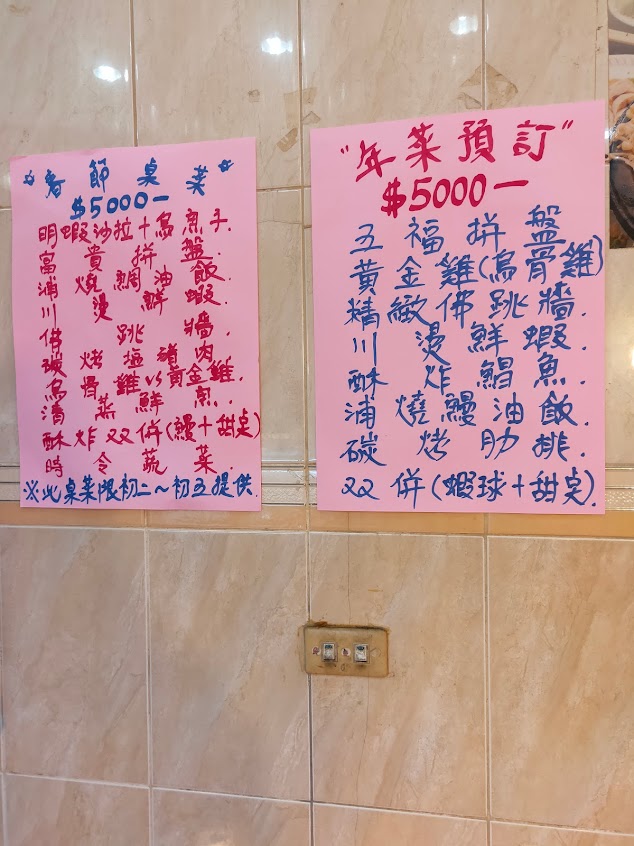 春節桌菜
$5000—
明蝦沙拉+烏魚子.
富貴拼盤
浦燒鯛油飯
川燙鮮蝦.
佛跳牆.
碳烤塩豬肉
烏骨雞vs黃金雞.
清蒸鮮魚.
酥炸双併(鰻+甜点)
時令蔬菜
※此桌菜限初二~初五提供.
"年菜預訂"
$5000—
五福拼盤
黃金雞(烏骨雞)
精緻佛跳牆.
川燙鮮蝦.
酥炸鯧魚.
浦燒鰻油飯.
碳烤肋排.
双併(蝦球+甜点).